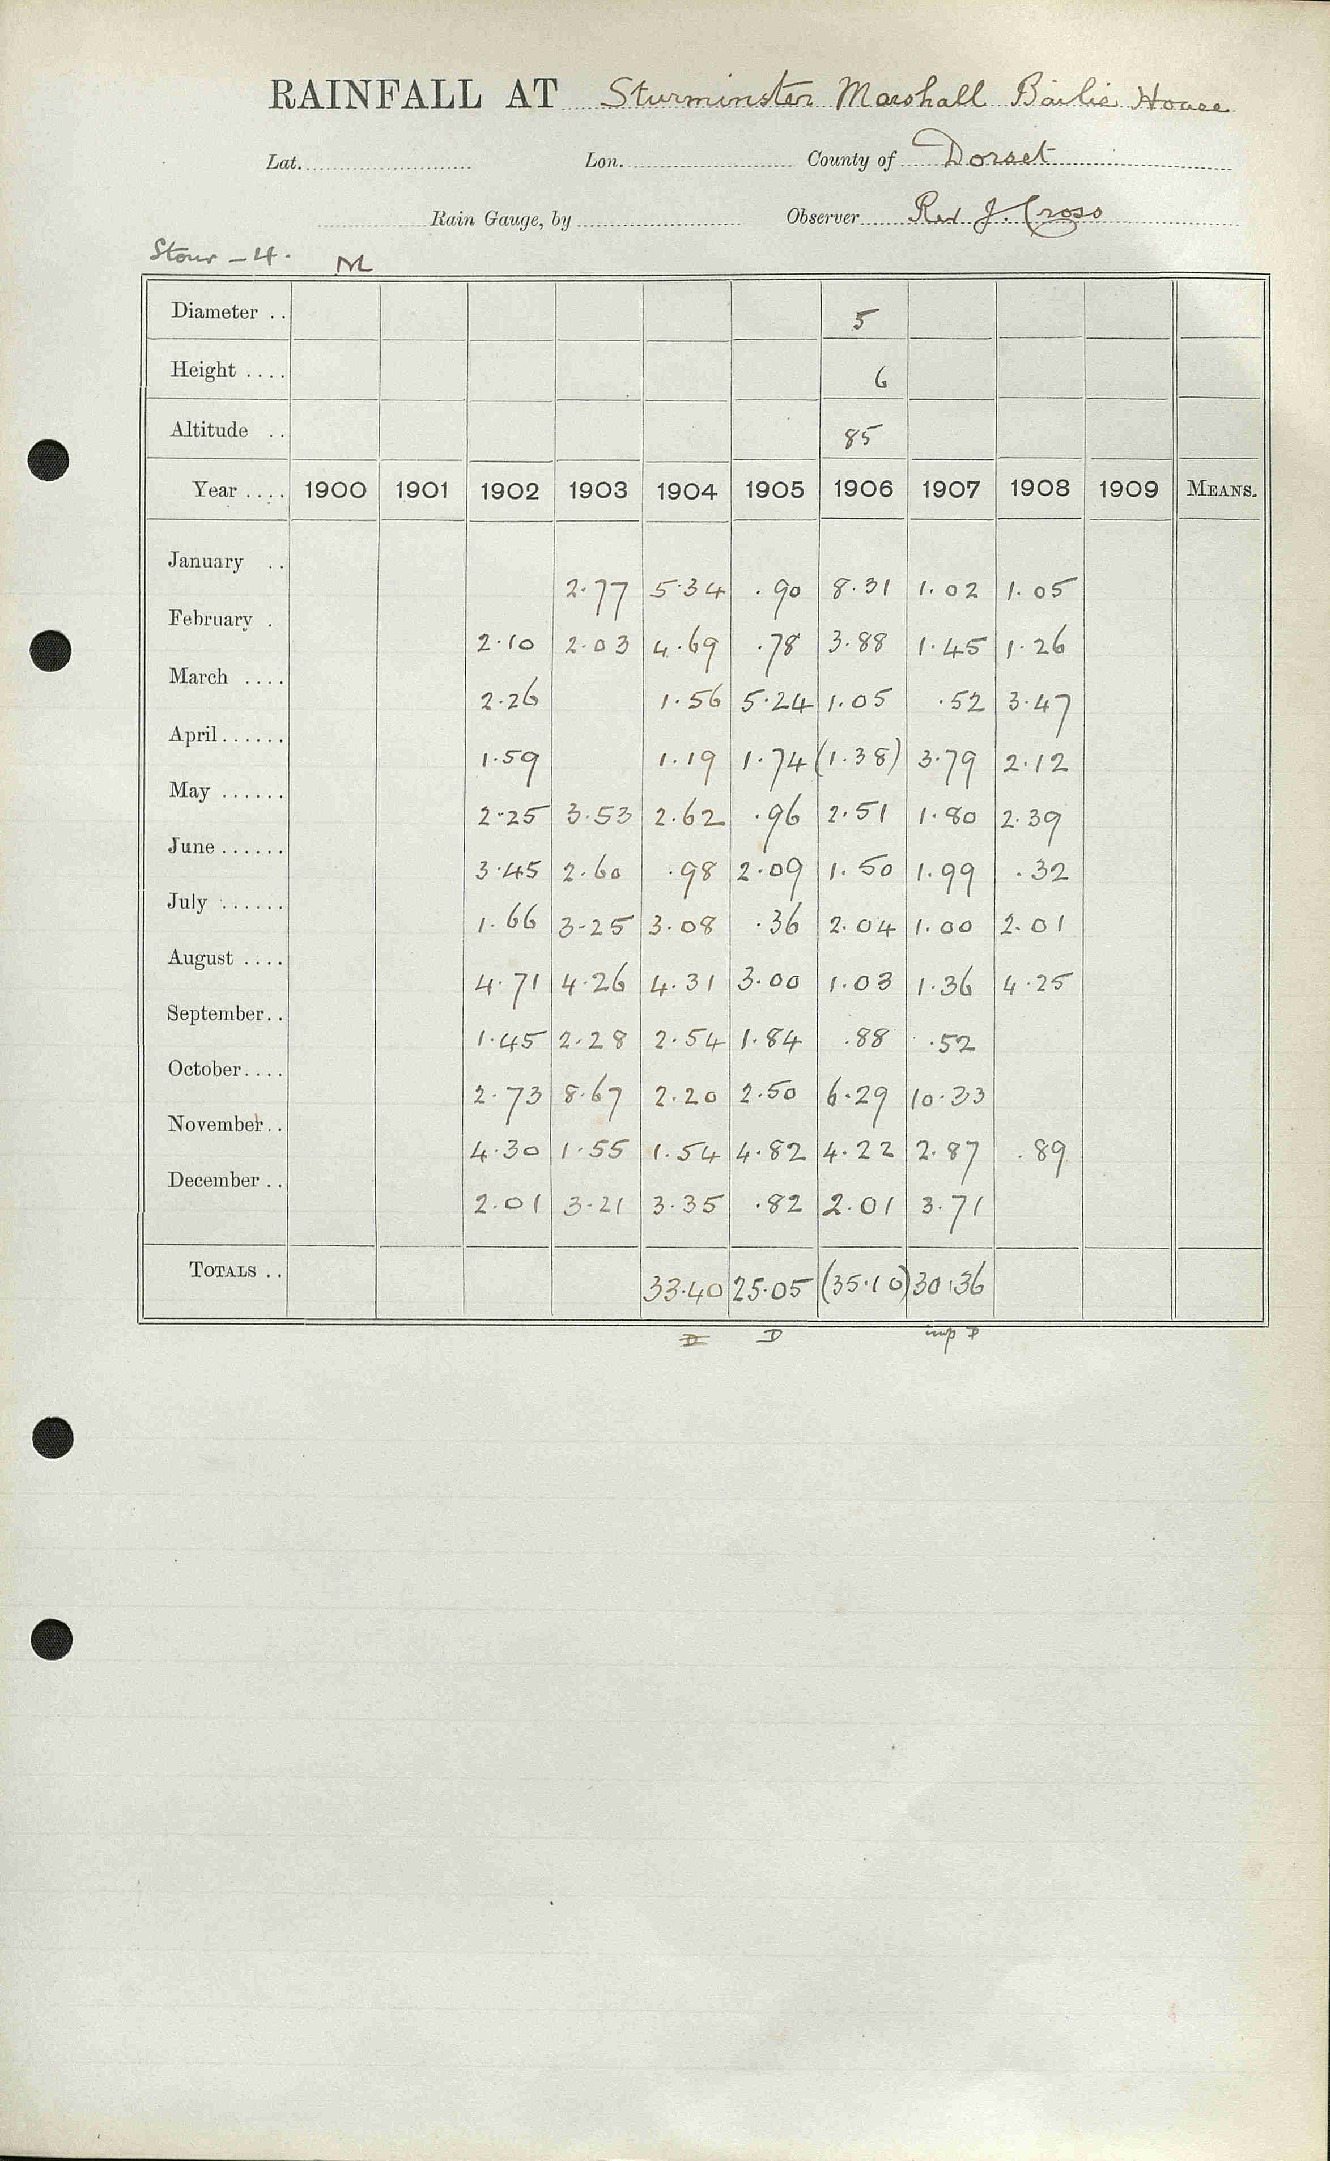 RAINFALL AT Sturminster Marshall Bailie House
Lat. Lon. County of Dorset
Rain Gauge, by Observer Rev J. Cross
Stour - 4. M
Diameter .. 5
Height .... 6
Altitude .. 85
Year .... 1900 1901 1902 1903 1904 1905 1906 1907 1908 1909 MEANS.
January .. 2.77 5.34 .90 8.31 1.02 1.05
February . 2.10 2.03 4.69 .78 3.88 1.45 1.26
March .... 2.26 1.56 5.24 1.05 .52 3.47
April ...... 1.59 1.19 1.74 (1.38) 3.79 2.12
May ...... 2.25 3.53 2.62 .96 2.51 1.80 2.39
June ...... 3.45 2.60 .98 2.09 1.50 1.99 .32
July ...... 1.66 3.25 3.08 .36 2.04 1.00 2.01
August .... 4.71 4.26 4.31 3.00 1.03 1.36 4.25
September.. 1.45 2.28 2.54 1.84 .88 .52
October.... 2.73 8.67 2.20 2.50 6.29 10.33
November.. 4.30 1.55 1.54 4.82 4.22 2.87 .89
December .. 2.01 3.21 3.35 .82 2.01 3.71
TOTALS .. 33.40 25.05 (35.10) 30.36
D D imp D